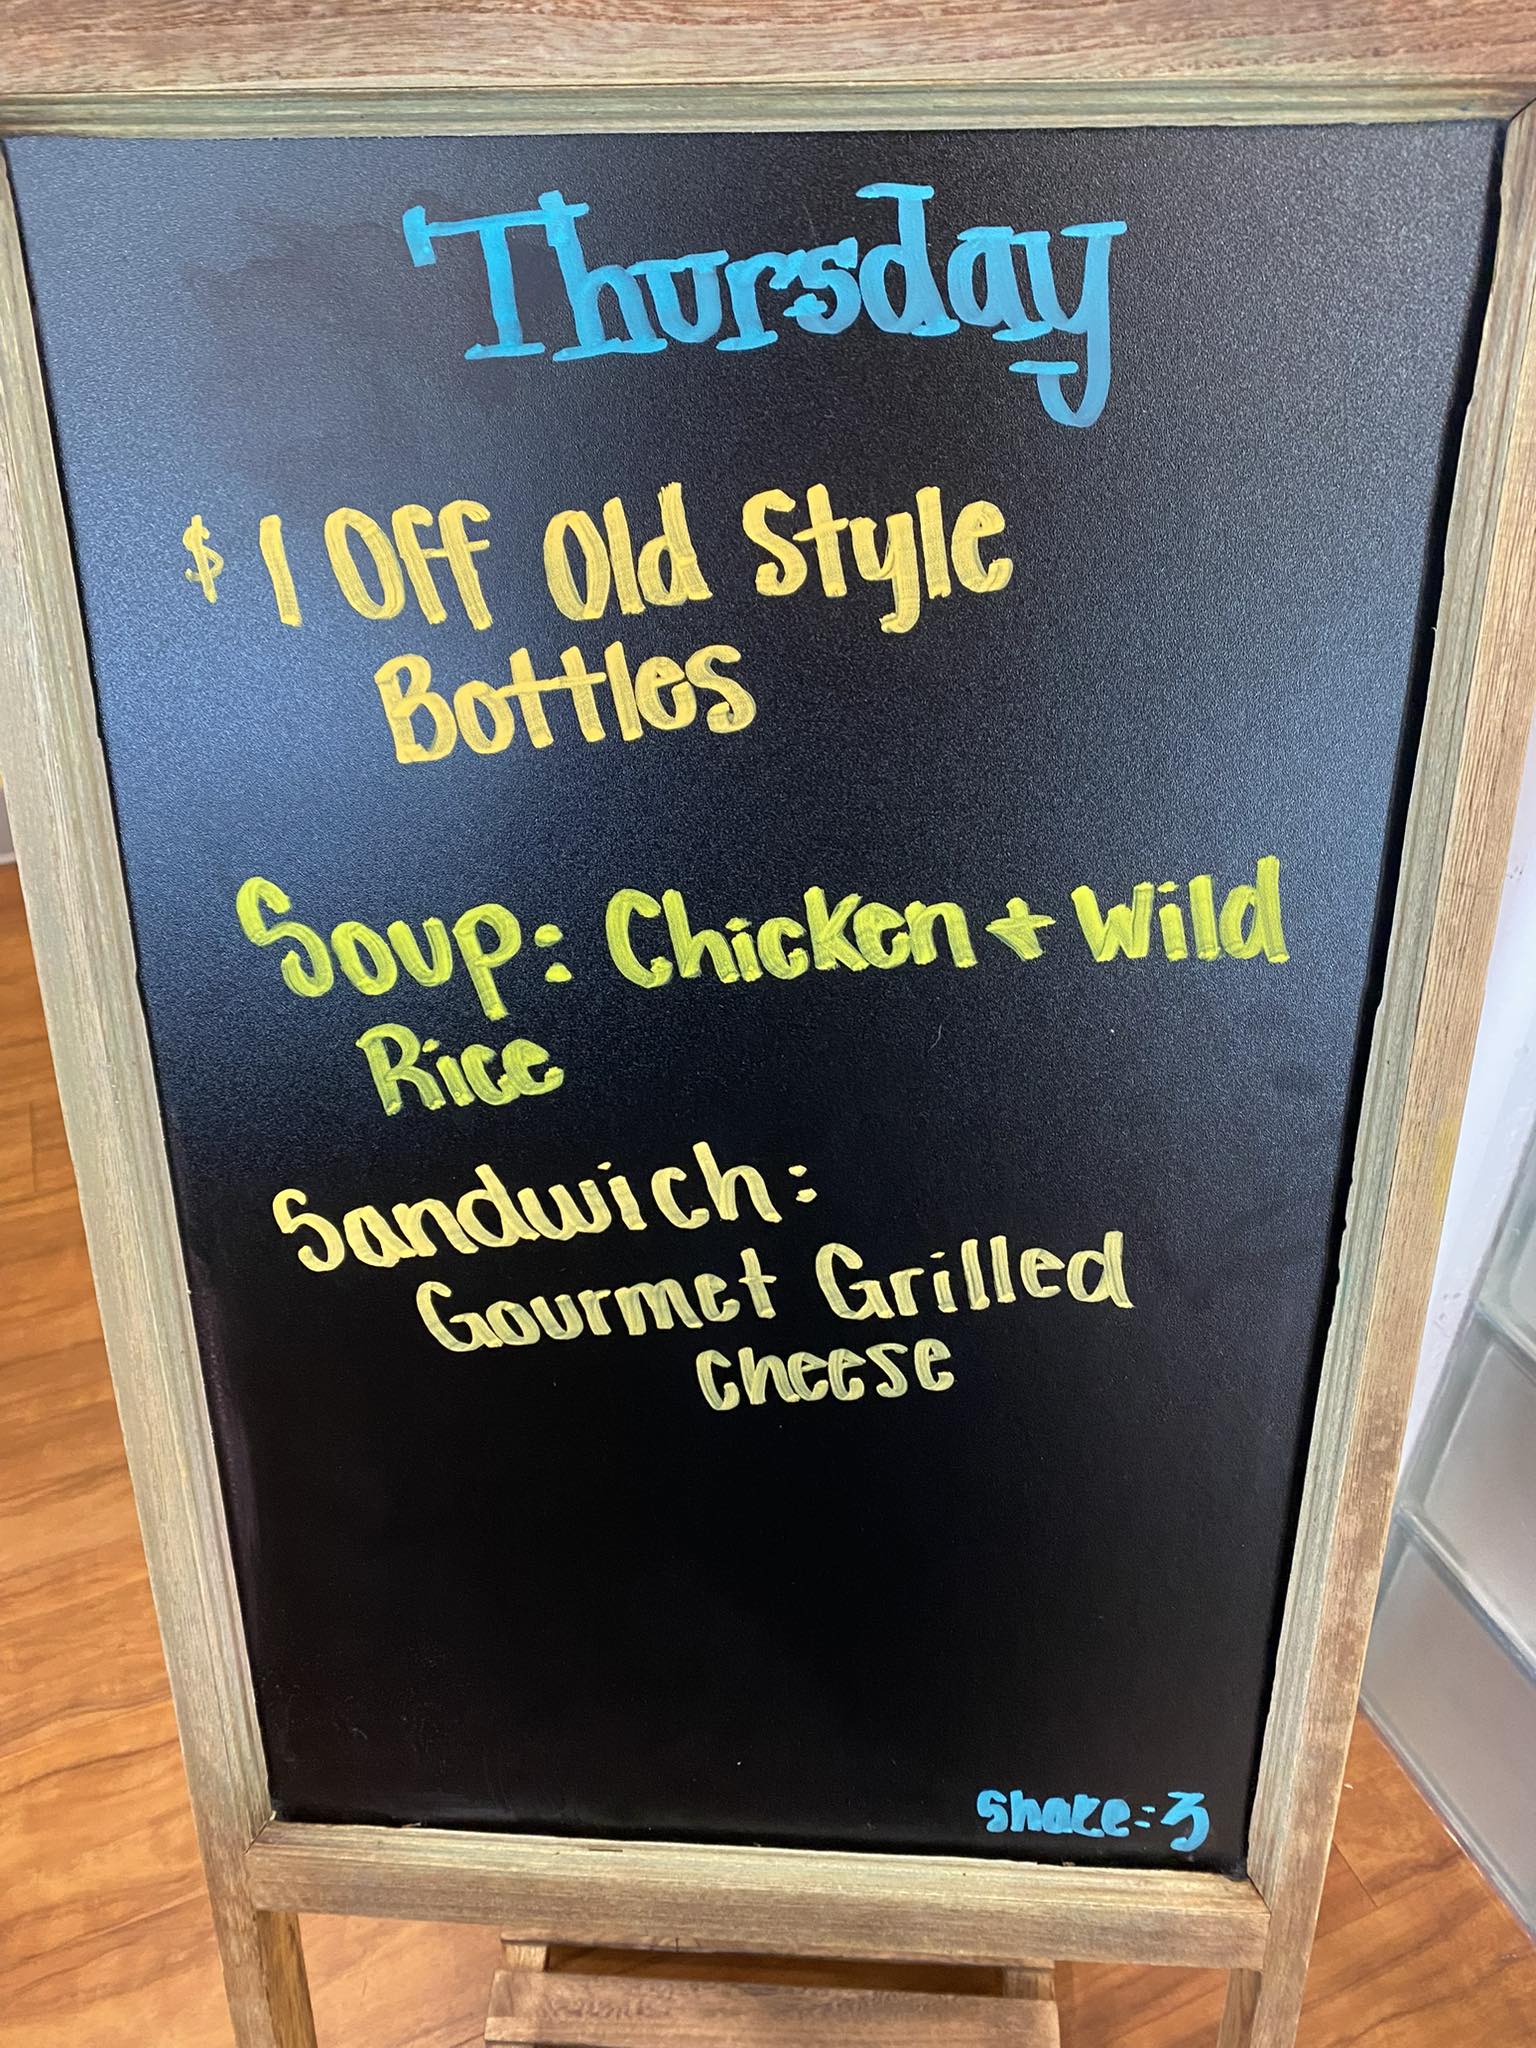 Thursday
$1 Off Old Style
Bottles
Soup: Chicken + Wild
Rice
Sandwich:
Gourmet Grilled
Cheese
Shake: 3